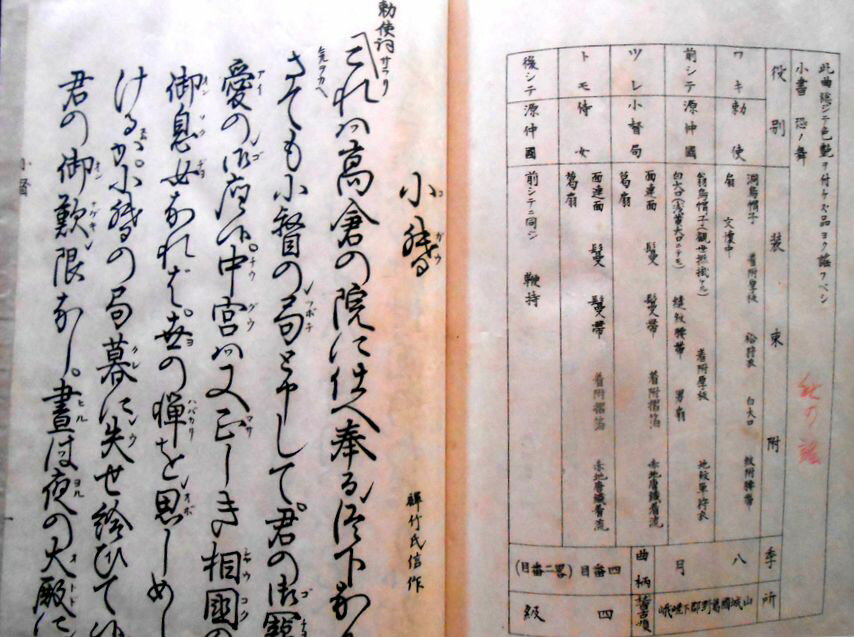 此曲總シテ色艶ヲ付ケズ品ヨク謡フベシ
小書 恐ノ舞
役別 装束附 季所
ワキ 勅使 洞烏帽子 着附厚板 袷狩衣 白大口 紋附腰帯
扇 文懐中
前シテ 源仲國 翁烏帽子
白大口(浅黄大口ニテモ) 縫紋腰帯 男扇 着附厚板 地紋單狩衣
ツレ 小督局 面連面 鬘 鬘帯 着附摺箔 赤地唐織着流
葛扇
トモ 侍女 面連面 鬘 鬘帯 着附摺箔 赤地唐織着流
葛扇
後シテ 源仲國 前シテニ同ジ 鞭持
八月
山城國葛野郡下嵯峨
曲柄 四番目(畧二番目)
稽古順 四級
秋の謡
小督
コガウ
禪竹氏信作
勅使詞サラリ
これは高倉の院に仕へ奉る臣下なり
さても小督の局と申して。君の御寵
愛の御座候。中宮は又正しき相國の
御息女なれば。世の憚を思しめし
けるか。小督の局暮に失せ給ひて候
君の御歎限なし。晝は夜の大殿に
小督